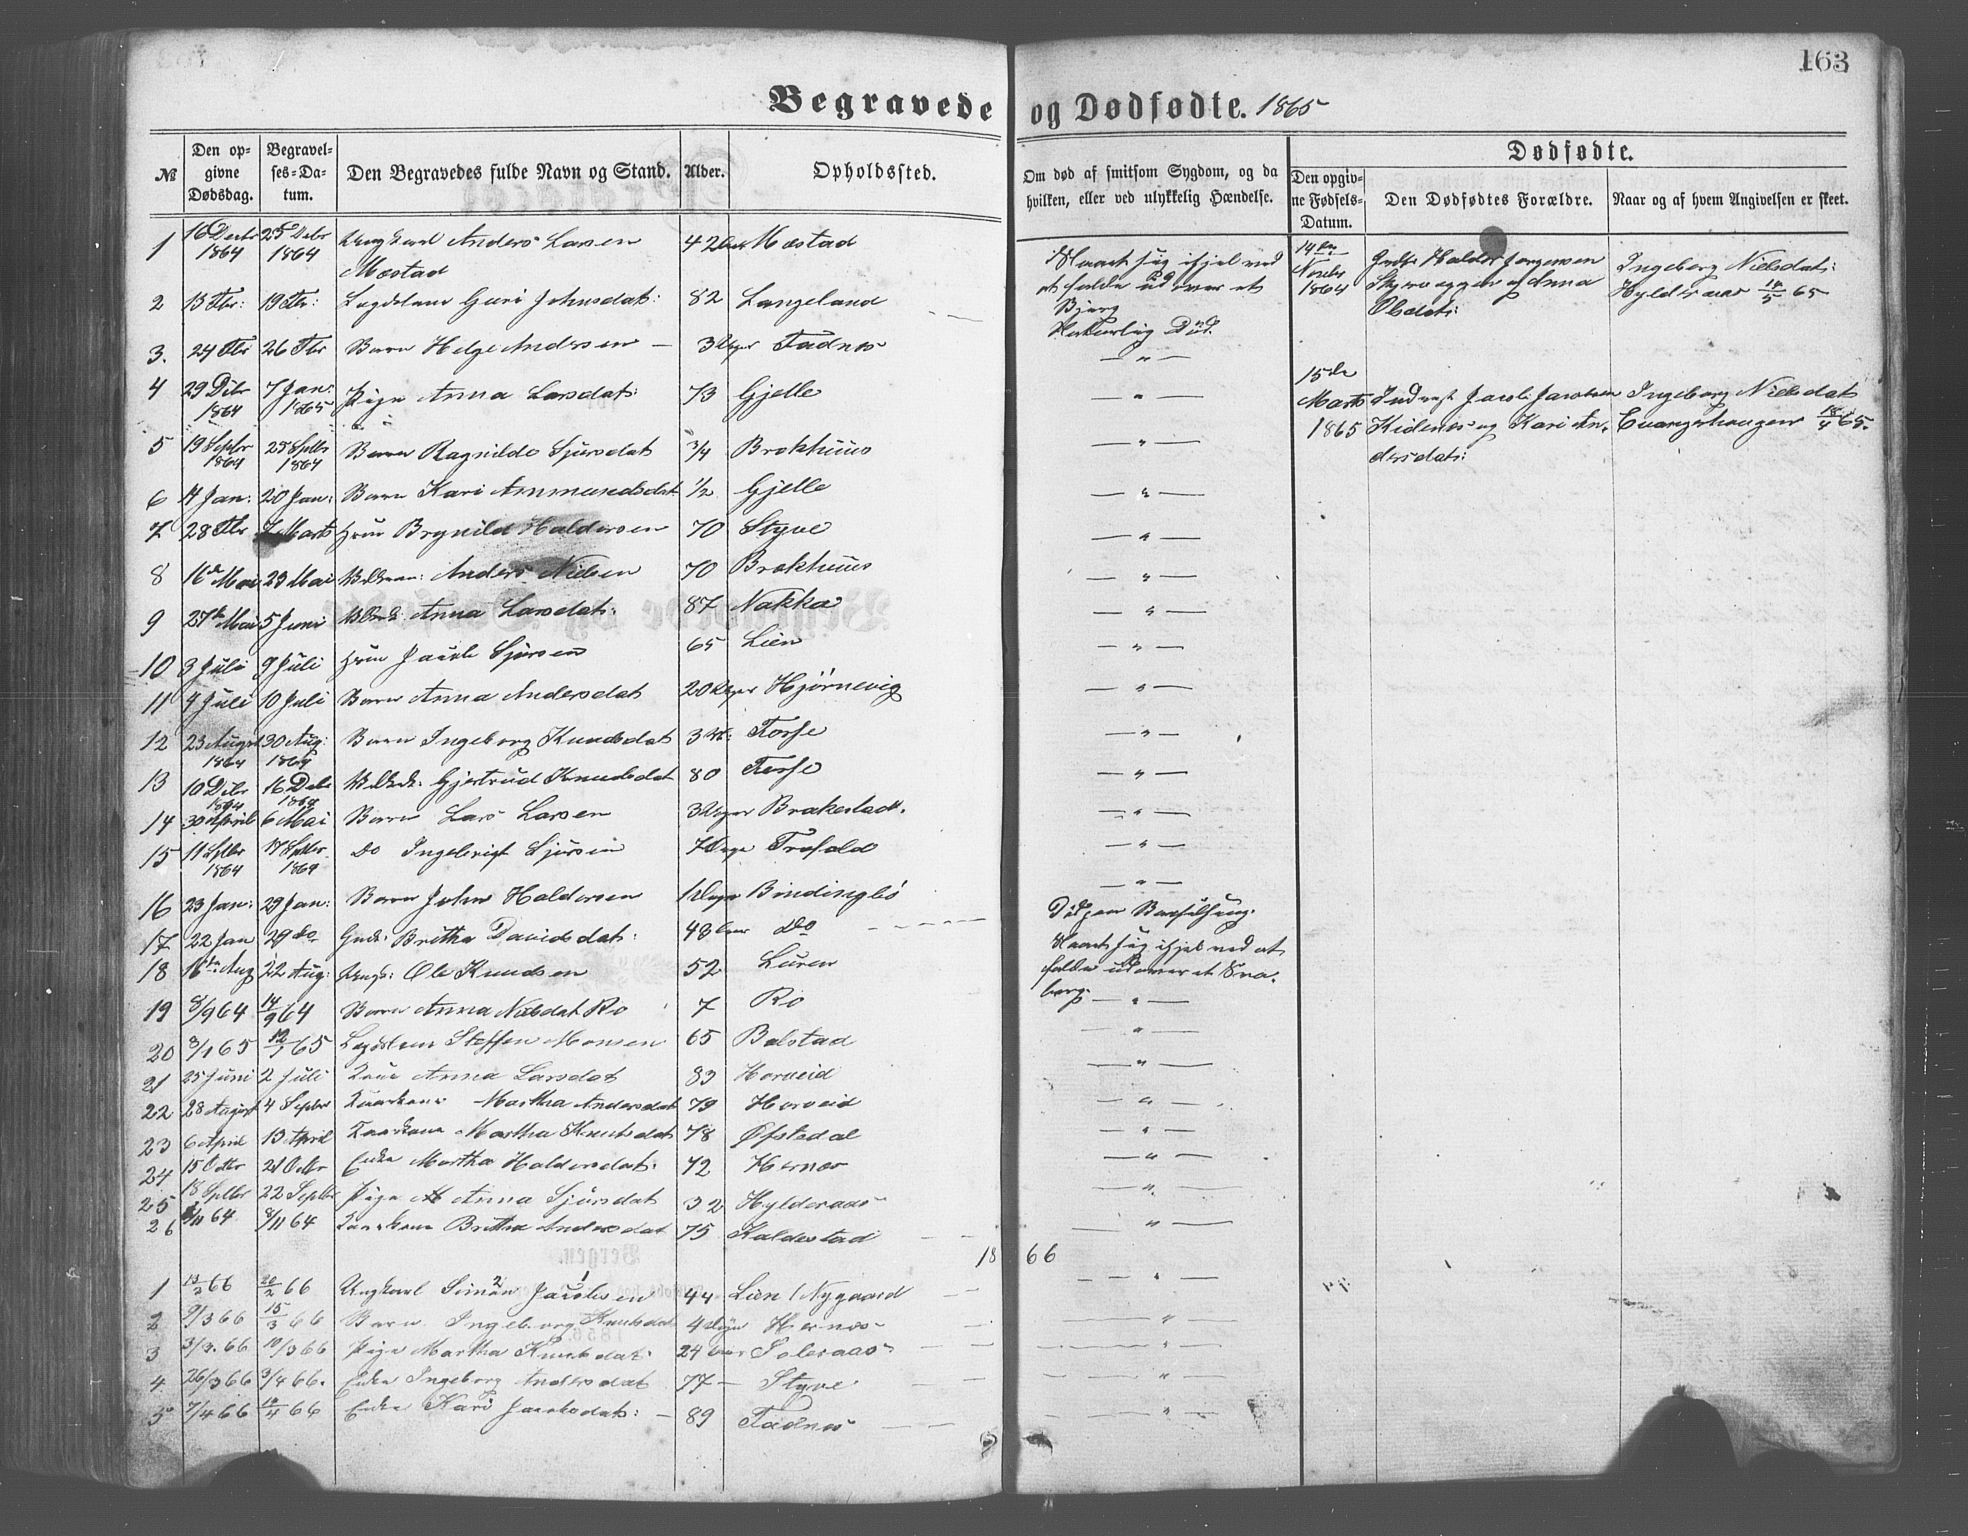 163
Begravede og Dødfødte. 1865
№ Den opgivne Dødsdag. Begravelses-Datum. Den Begravedes fulde Navn og Stand. Alder. Opholdssted. Om død af smitsom Sygdom, og da hvilken, eller ved ulykkelig Hændelse. Dødfødte.
Den opgivne Fødsels-Datum. Den Dødfødtes Forældre. Naar og af hvem Angivelsen er skeet.
1 16 Decbr 1864 25 Debr 1864 Ungkarl Anders Larsen Mæstad 42 Aar Mæstad
2 13 Fbr: 19 Fbr: Lægdslem Guri Johnsdat: 82 Langeland
3. 24 Fbr 26 Fbr Barn Helge Andersen 3 Uger Fadnes
4 29 Debr 1864 7 Jan: 1865 Pige Anna Larsdat: 73 Gjelle
5 19 Septbr 1864 25 Septbr 1864 Barn Ragnilde Sjursdat 3/4 Brekhuus
6 14 Jan: 20 Jan: Barn Kari Ammundsdat 1/2 Gjelle
7 28 Fbr 7 Marts Huus Brynild Haldorsen 70 Styve
8 16de Mai 23 Mai Anders Nielsen 70 Brekhuus
9 27de Mai 5 Juni Anna Larsdat: 87 Nakka
10 3 Juli 9 Juli Huus Jacob Sjursen 65 Lien
11 4 Juli 10 Juli Barn Anna Andersdat 20 Uger Hjørnevig
12 23 August 1864 30 Aug: 1864 Barn Ingeborg Knudsdat 3 Fosse
13 10 Debr 1864 16 Debr 1864 Gjertrud Knudsdat 80 Fosse
14 30 April 6 Mai Barn Lars Larsen 3 Uger Brakestad.
15 11 Septbr 1864 17 Septbr 1864 Do Sjursen 7 Dage Trefald
16 23 Jan: 29 Jan: Barn John Haldorsen 1 Dage Bindingbø
17 22 Jan 29 do Gmdk: Britha Davidsdat: 48 Aar Do
18 16de Aug 22 Aug: Ole Knudsen 52 Luren
19 8/9 64 14/9 64 Barn Anna Nielsdat Rø 7 Rø
20 3/1 65 12/1 65 Lægdslem Steffen Monsen 65 Bolstad
21 25 Juni 2 Juli Anna Larsdat 83 Horveid
22 28 August 4 Septbr Kaarkone Martha Andersdat 79 Horveid
23 6 April 13 April Kaarkone Martha Knutsdat 78 Øfstedal
24 15 Octbr 21 Octbr Enke Martha Haldorsdat: 72 Hernes
25 18 Septbr 22 Septbr Pige Anna Sjursdat 32 Hylderaas
26 /11 64 8/11 64 Kaarkone Britha Andersdat 75 Kaldestad
1866
1 13/2 66 20/2 66 Ungkarl Simon Jacobsen 44 Lien / Nygaard
2 9/3 66 15/3 66 Barn Ingeborg Knutsdat 4 Hernes
3 3/3. 66 10/3 66 Pige Martha Knutsdat: 24 Aar Soleraas
4 26/3 66 3/4 66. Enke Ingeborg Andersdat 77 Styve
5 7/4 66 14/4 66 Enke Kari Jacobsdat: 89 Fadnes
Slaaet sig ihjel ved
at falde ud over et
Bjerg
Naturlig Død.
Død paa Barselseng.
Slaaet sig ihjel ved at
falde udover et Sva-
berg
14de Novbr 1864 Halder Jørgensen
Skjerveggen og Anna
Olsdat:
Ingeborg Nielsdat:
Hylderaas 14/5 65
15de Marts 1865 Indvst Jacob Jacobsen
Kidenes og Kari An-
dersdat:
Ingeborg Nielsdat
Evangerhougen 18/4 65.